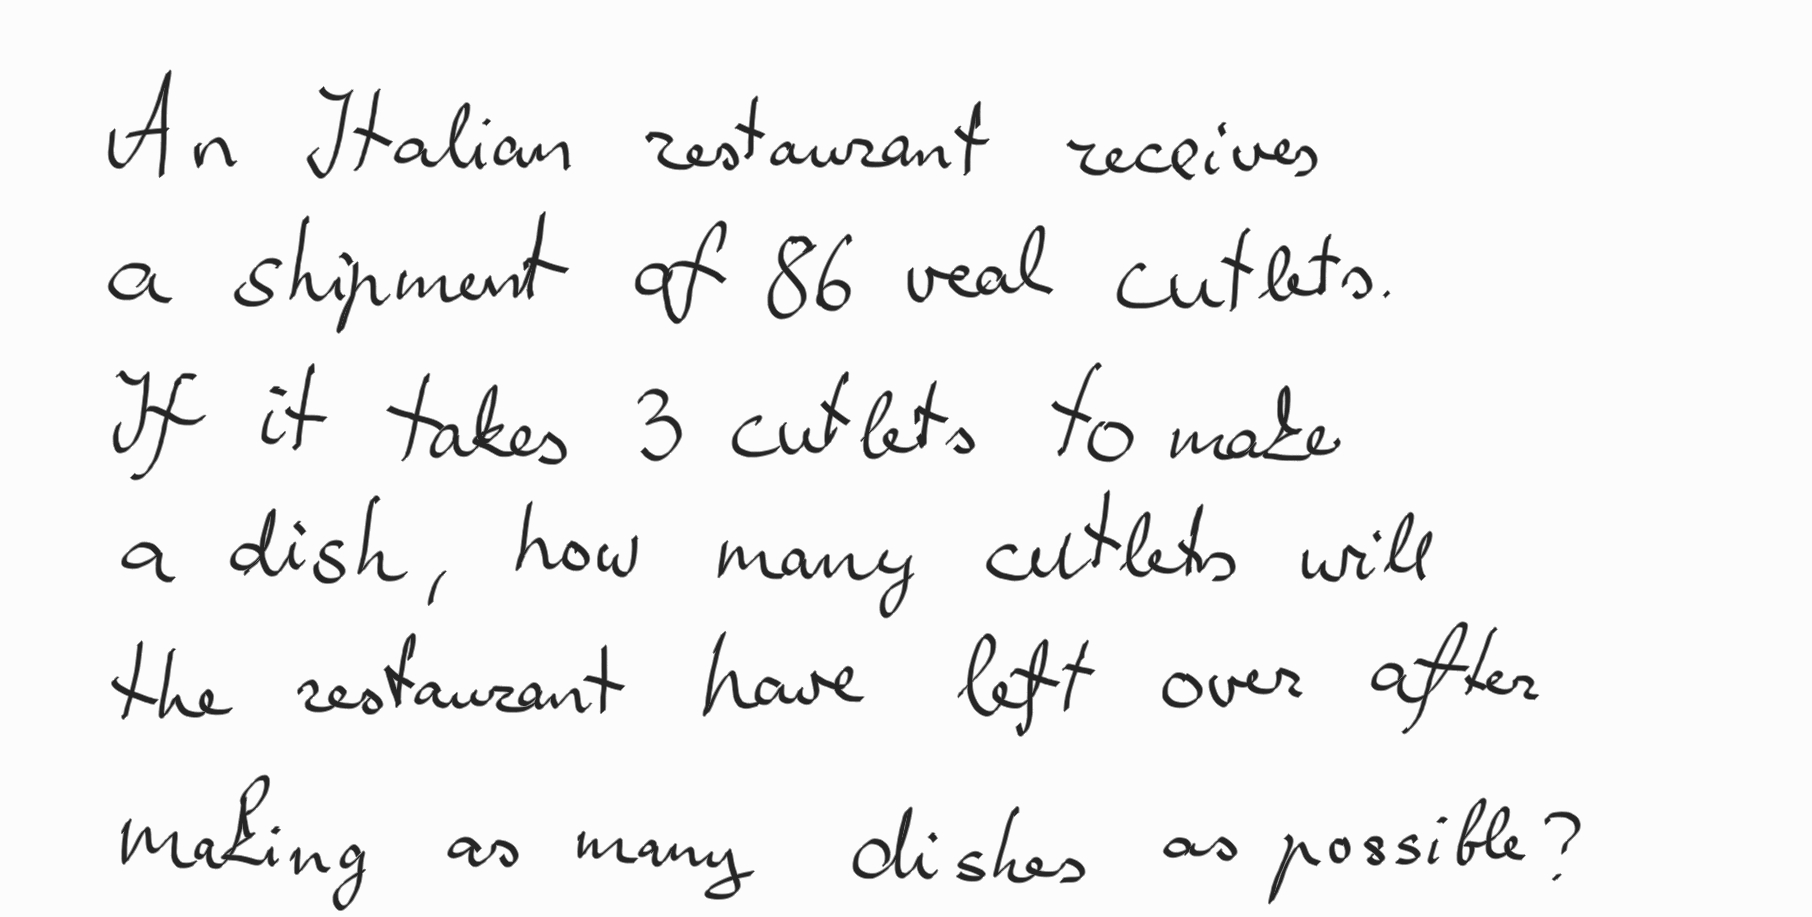 An Italian restaurant receives
a shipment of 86 veal cutlets.
If it takes 3 cutlets to make
a dish, how many cutlets will
the restaurant have left over after
making as many dishes as possible?